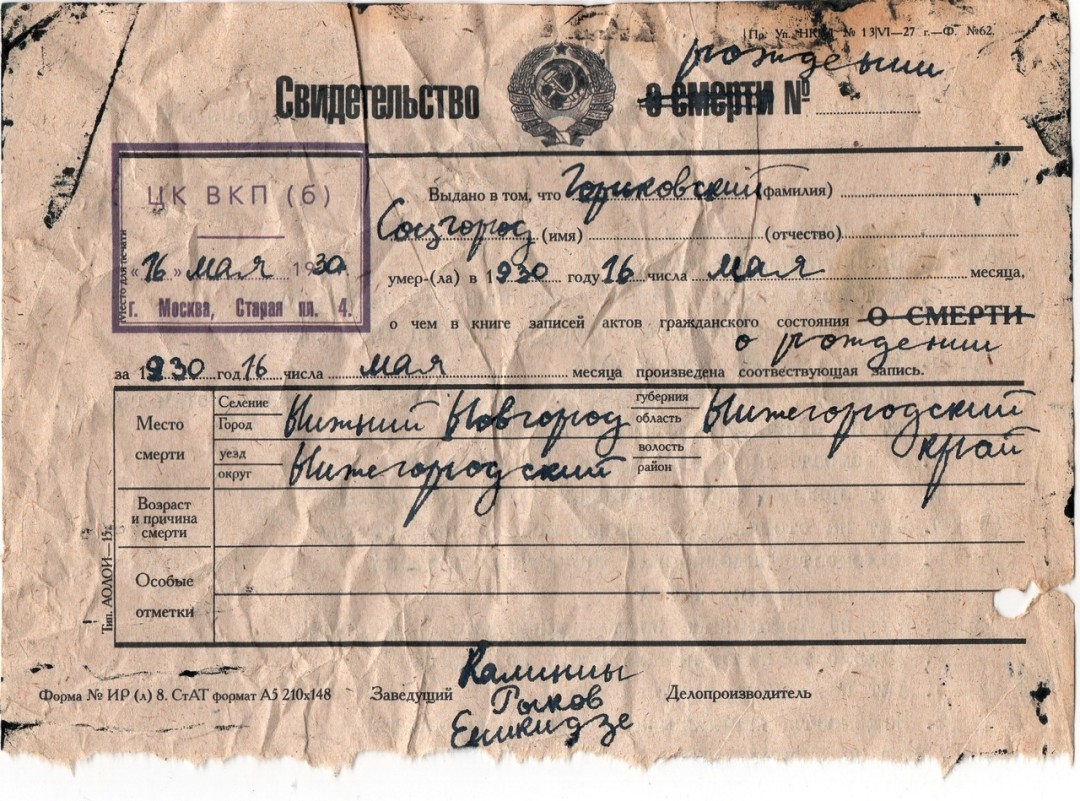 Пр. Уп. НК № 13|VI—27 г.—Ф. №62.
рождении
Свидетельство о смерти №
ЦК ВКП (б)
Место для печати
«16» мая 1930
г. Москва, Старая пл. 4.
Выдано в том, что Горьковский (фамилия)
Соцгород (имя) (отчество)
умер-(ла) в 1930 году 16 числа мая месяца,
о чем в книге записей актов гражданского состояния О СМЕРТИ
о рождении
за 1930 год 16 числа мая месяца произведена соотвествующая запись.
Место смерти
Селение Город Нижний Новгород губерния область Нижегородский край
уезд округ Нижегородский волость район
Возраст и причина смерти
Особые отметки
Тип. АОЛОИ—15г.
Форма № ИР (л) 8. СтАТ формат А5 210х148 Заведущий Делопроизводитель
Калинин
Рыков
Енукидзе